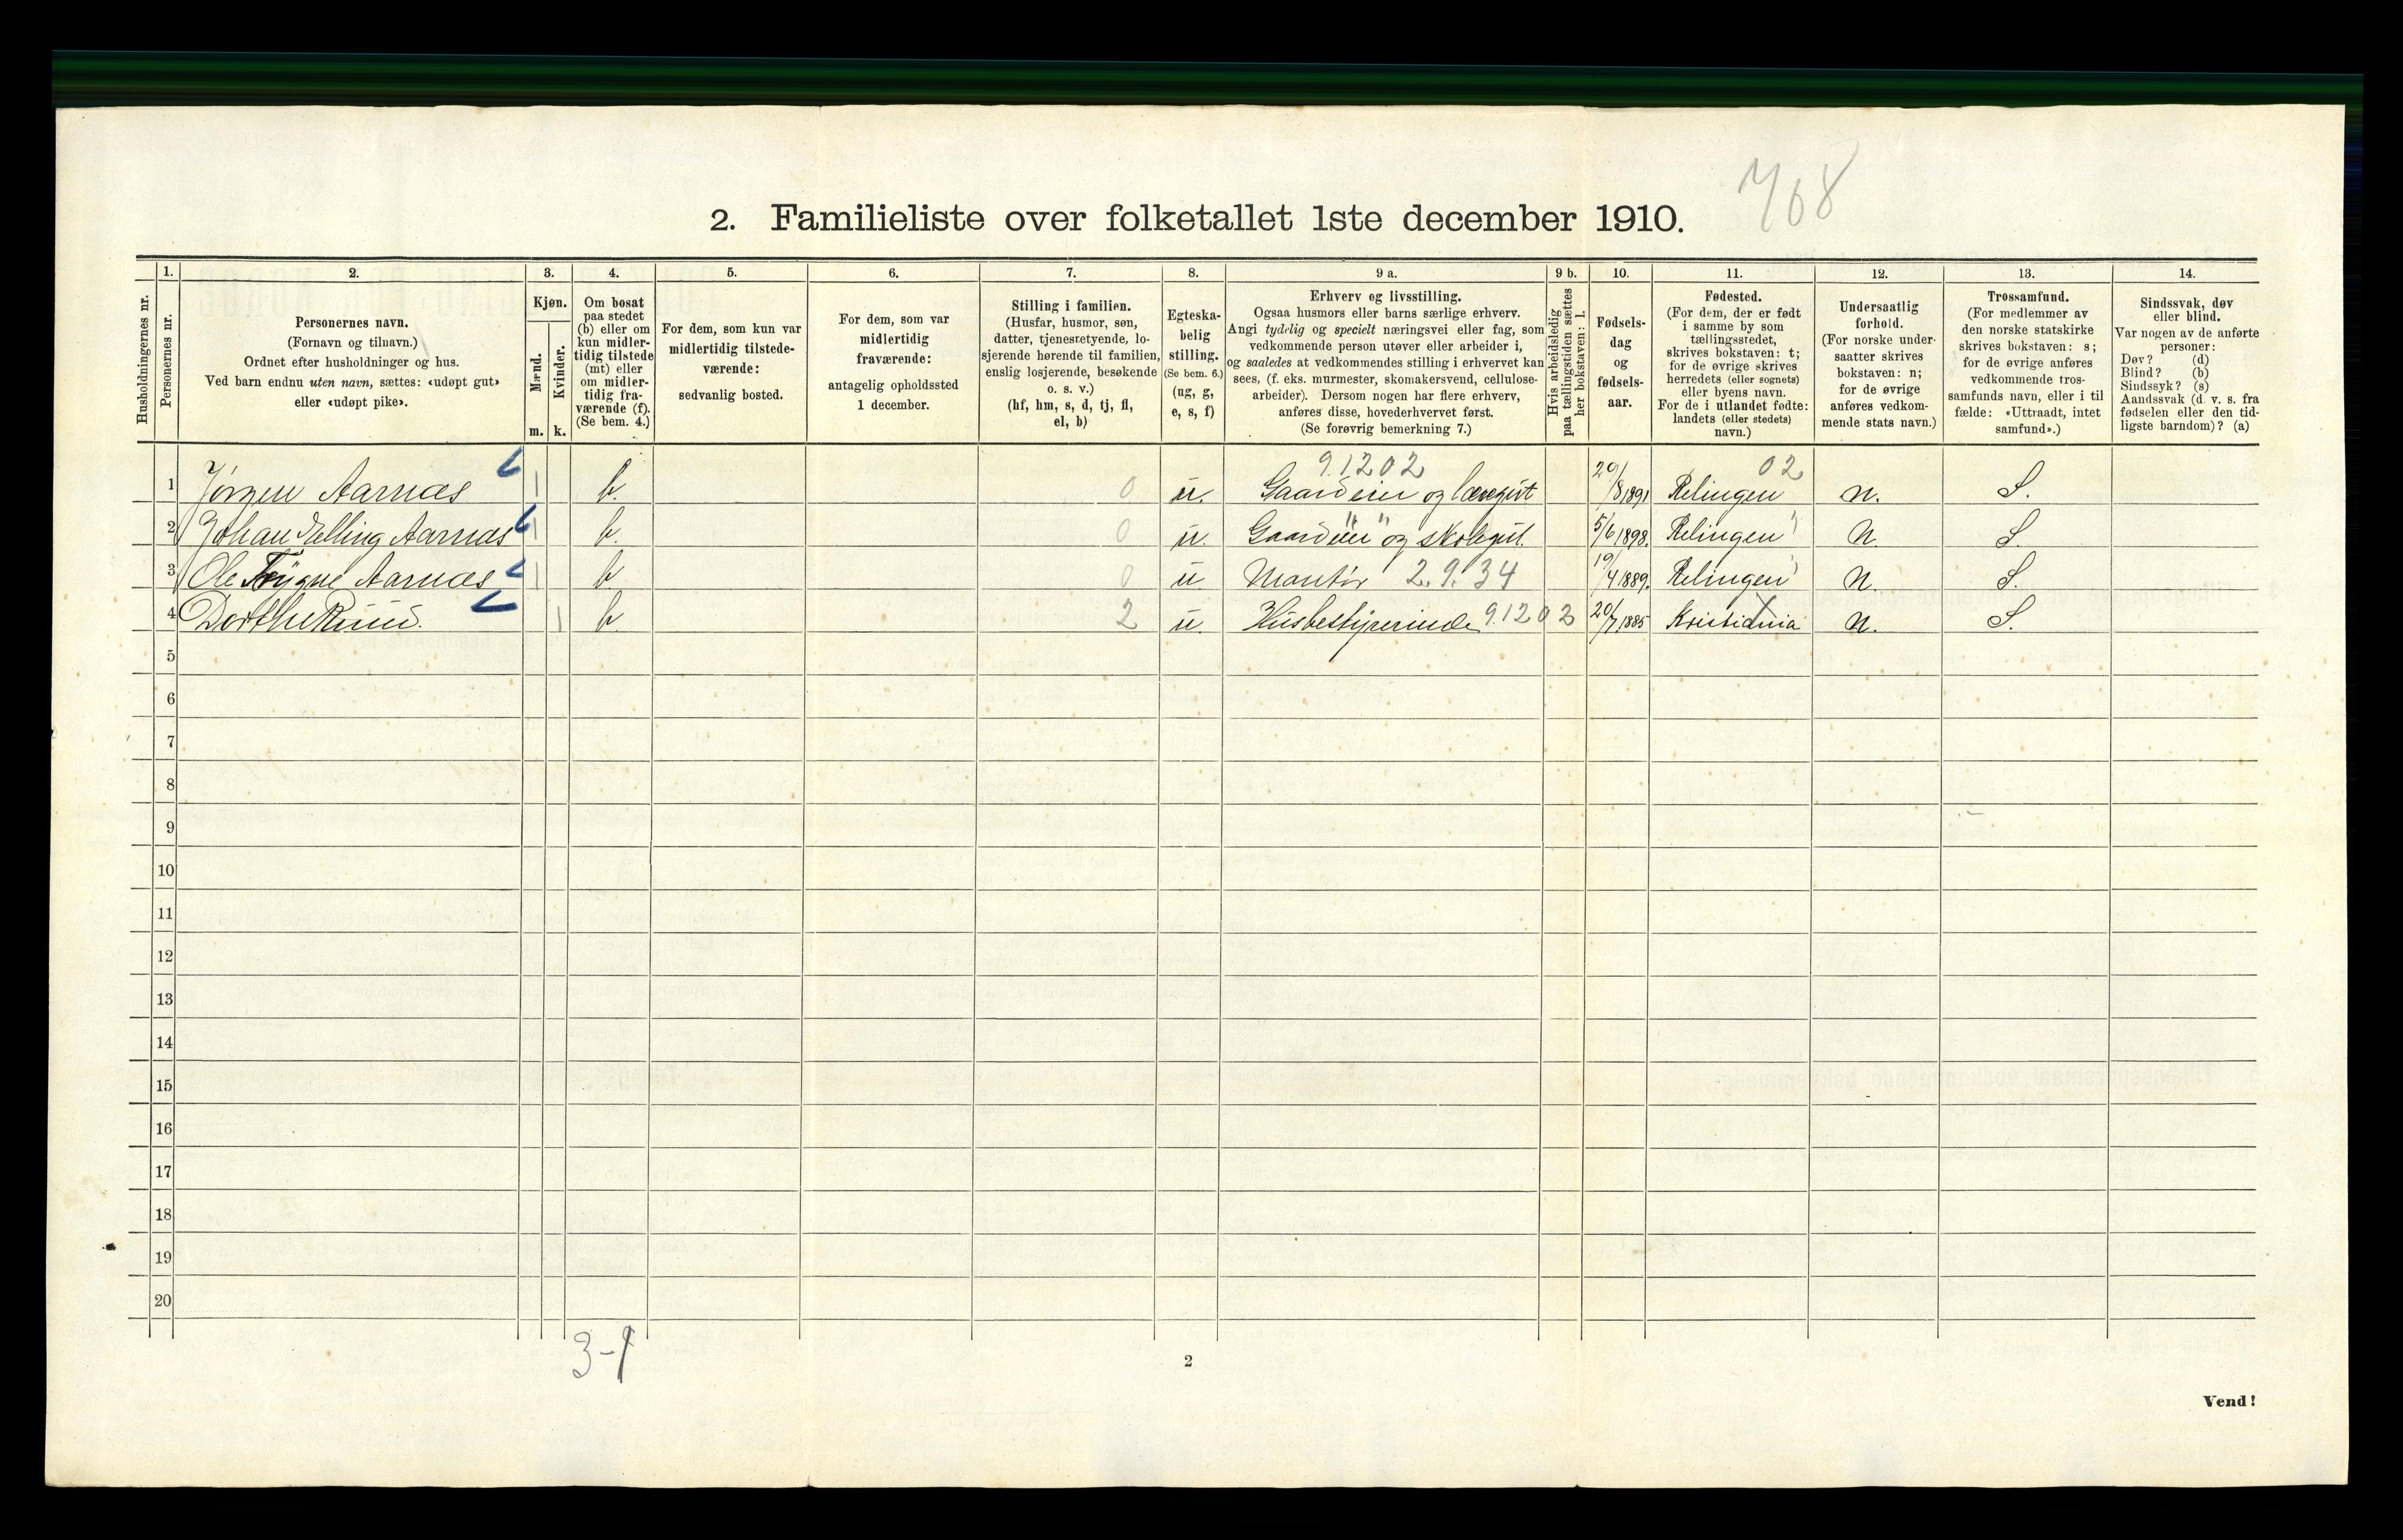 768
2. Familieliste over folketallet 1ste december 1910.
Husholdningernes nr.
1. Personernes nr.
2. Personernes navn.
(Fornavn og tilnavn.)
Ordnet efter husholdninger og hus.
Ved barn endnu uten navn, sættes: «udøpt gut»
eller «udøpt pike».
3. Kjøn.
Mænd. m.
Kvinder. k.
4. Om bosat
paa stedet
(b) eller om
kun midler-
tidig tilstede
(mt) eller
om midler-
tidig fra-
værende (f).
(Se bem. 4.)
5. For dem, som kun var
midlertidig tilstede-
værende:
sedvanlig bosted.
6. For dem, som var
midlertidig
fraværende:
antagelig opholdssted
1 december.
7. Stilling i familien.
(Husfar, husmor, søn,
datter, tjenestetyende, lo-
sjerende hørende til familien,
enslig losjerende, besøkende
o. s. v.)
(hf, hm, s, d, tj, fl,
el, b)
8. Egteska-
belig
stilling.
(Se bem. 6.)
(ug, g,
e, s, f)
9 a. Erhverv og livsstilling.
Ogsaa husmors eller barns særlige erhverv.
Angi tydelig og specielt næringsvei eller fag, som
vedkommende person utøver eller arbeider i,
og saaledes at vedkommendes stilling i erhvervet kan
sees, (f. eks. murmester, skomakersvend, cellulose-
arbeider). Dersom nogen har flere erhverv,
anføres disse, hovederhvervet først.
(Se forøvrig bemerkning 7.)
9 b. Hvis arbeidsledig
paa tællingstiden sættes
her bokstaven: l.
10. Fødsels-
dag
og
fødsels-
aar.
11. Fødested.
(For dem, der er født
i samme by som
tællingsstedet,
skrives bokstaven: t;
for de øvrige skrives
herredets (eller sognets)
eller byens navn.
For de i utlandet fødte:
landets (eller stedets)
navn.)
12. Undersaatlig
forhold.
(For norske under-
saatter skrives
bokstaven: n;
for de øvrige
anføres vedkom-
mende stats navn.)
13. Trossamfund.
(For medlemmer av
den norske statskirke
skrives bokstaven: s;
for de øvrige anføres
vedkommende tros-
samfunds navn, eller i til
fælde: «Uttraadt, intet
samfund».)
14. Sindssvak, døv
eller blind.
Var nogen av de anførte
personer:
Døv? (d)
Blind? (b)
Sindssyk? (s)
Aandssvak (d. v. s. fra
fødselen eller den tid-
ligste barndom)? (a)
9.1202 02
1 Jörgen Aarnæs 1 b. 0 u. Gaardeier og læregut 20/8 1891 Relingen n. S.
" "
2 Johan Elling Aarnæs 1 b. 0 u. Gaardeier og skolegut. 5/6 1898. Relingen n. S.
3 Ole Trygve Aarnæs 1 b 0 u Mantör 2.9.34 19/4 1889. Relingen n. S.
4 Dorthe Ruud. 1 b 2 u. Husbestyrerinde 9.1202 20/7 1885 Kristiania n. S.
5
6
7
8
9
10
11
12
13
14
15
16
17
18
19
20
3-1
2
Vend!